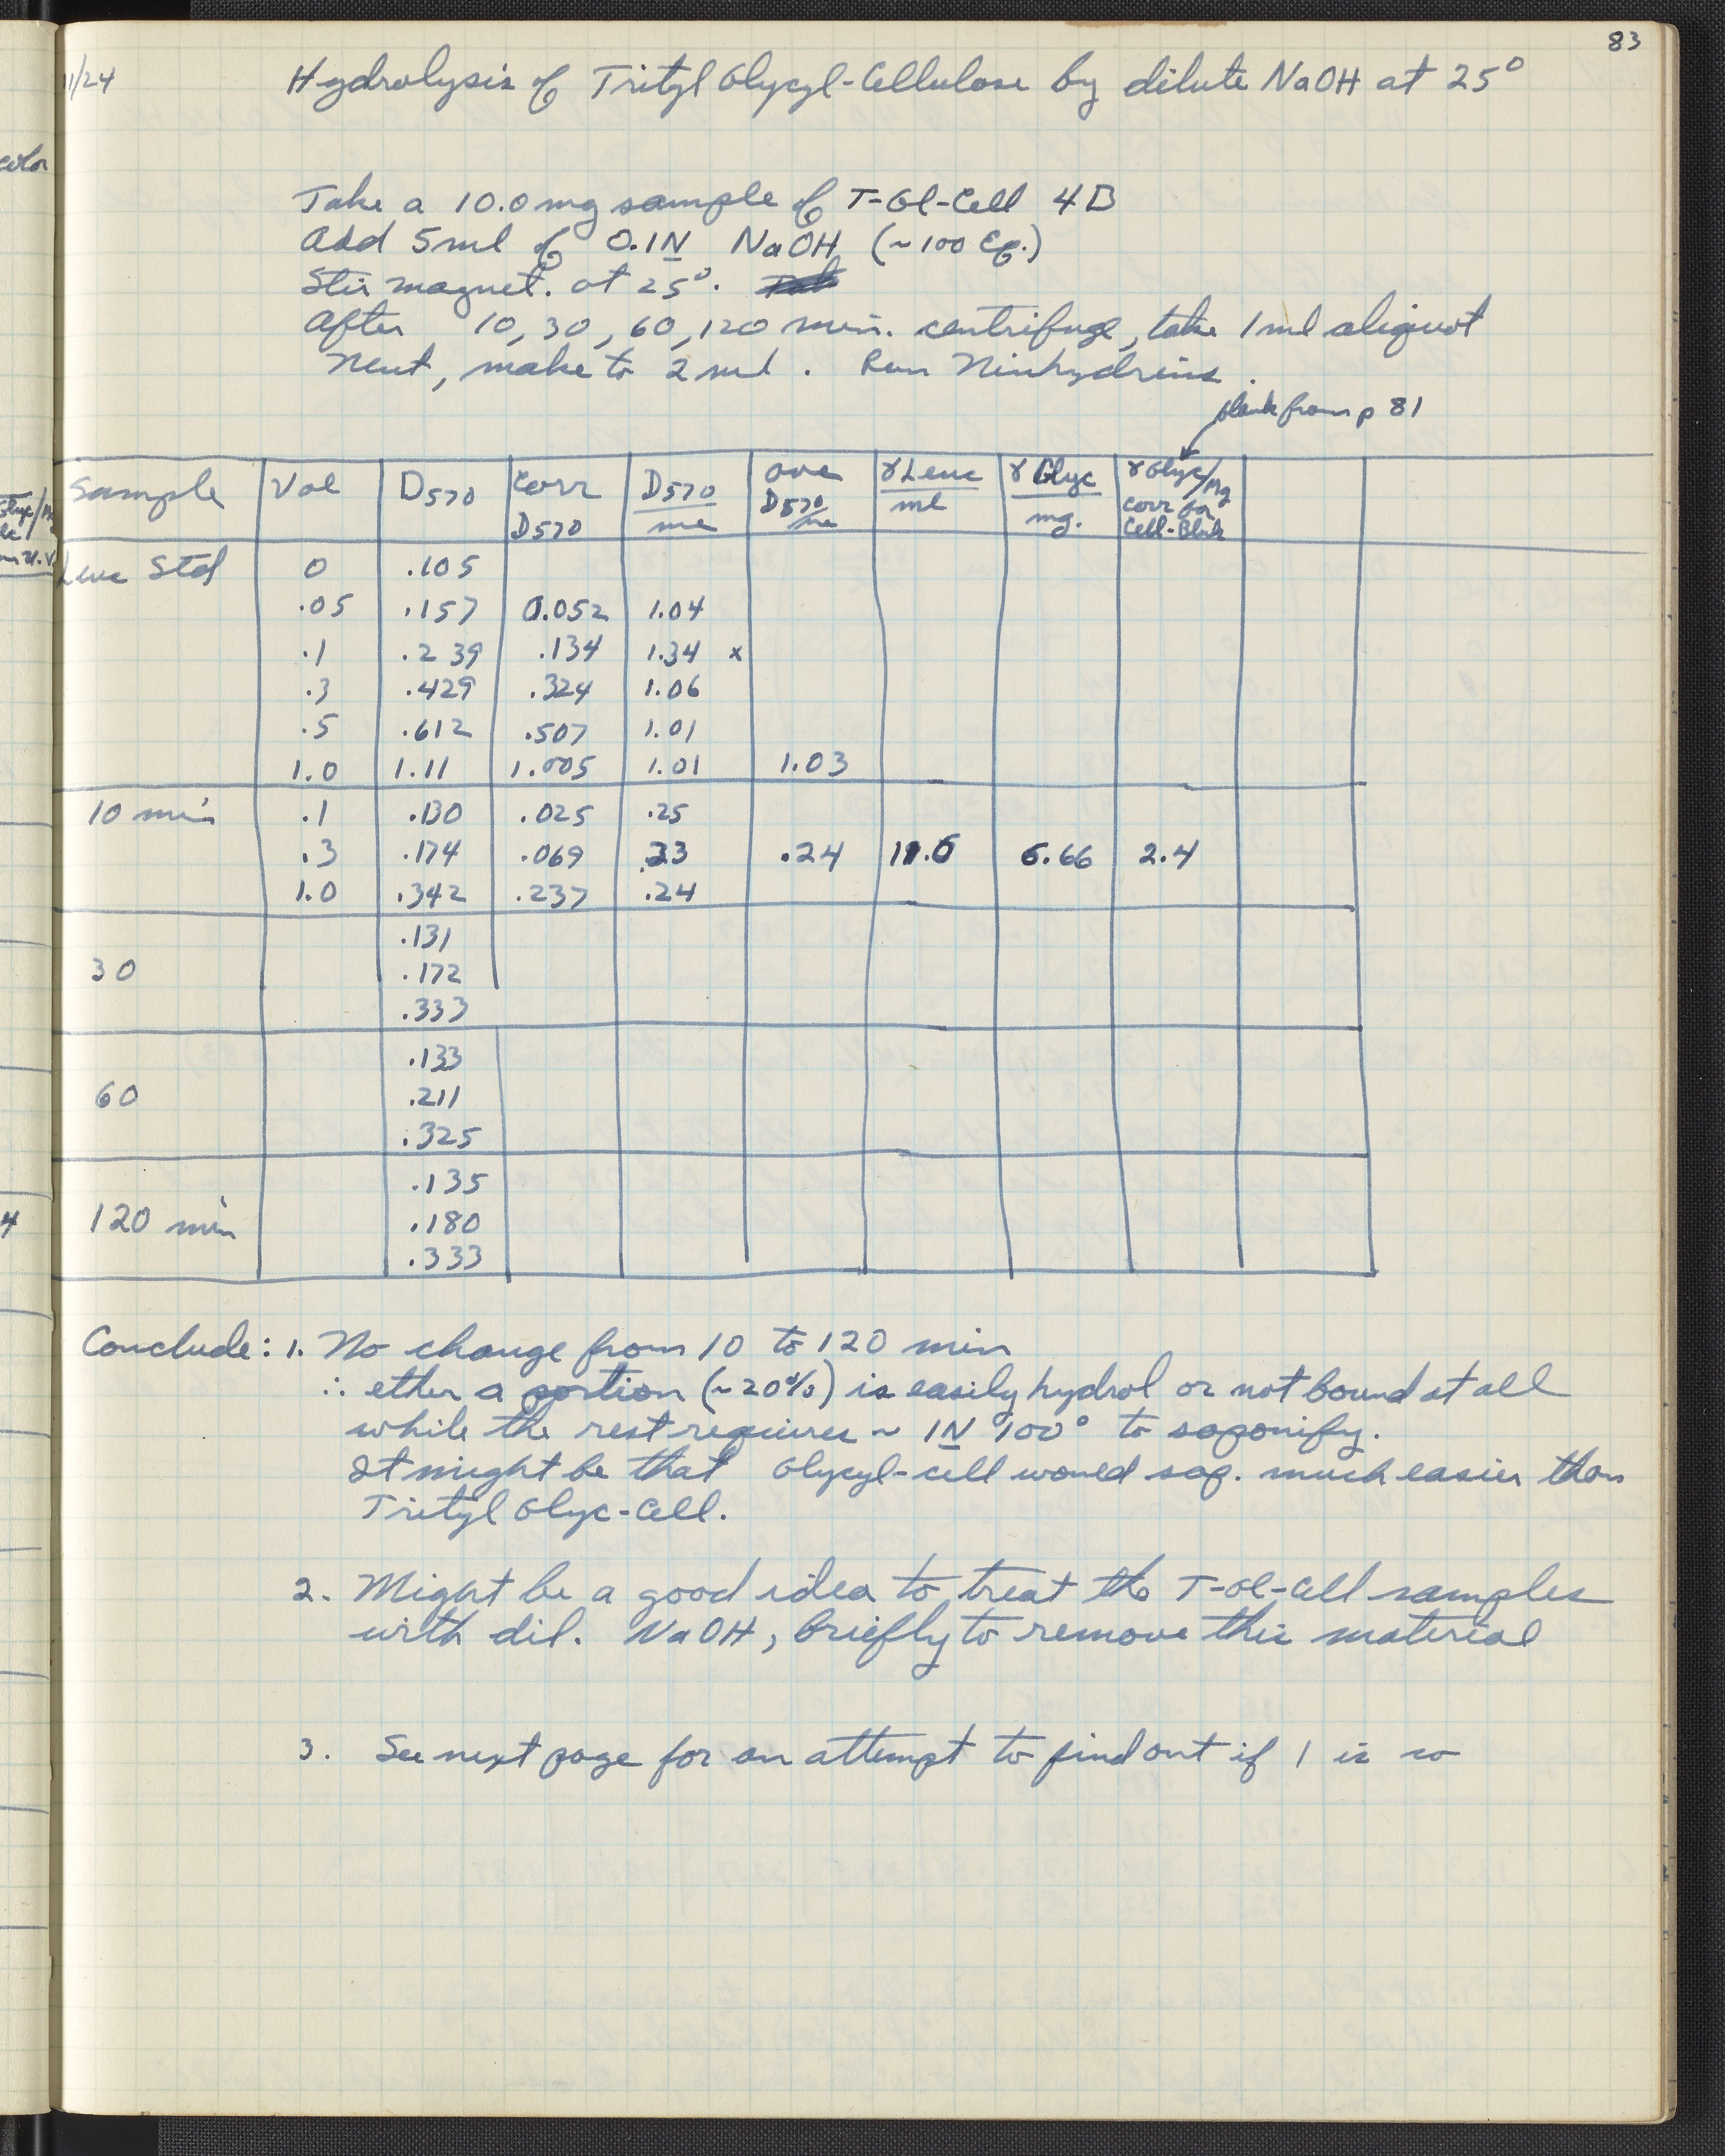 83
11/24 Hydrolysis of Trityl Glycyl-Cellulose by dilute NaOH at 25°
color
Take a 10.0 mg sample of T-Gl-Cell 4B
Add 5 ml of 0.1N NaOH (~100 Eq.)
Stir magnet. at 25°.
After 10, 30, 60, 120 min. centrifuge, take 1 ml aliquot
Neut, make to 2 ml. Run Ninhydrins.
blank from p 81
Sample Vol D570 Corr D570 D570/ml ave D570/ml γ Leuc/ml γ Glyc/mg. γ Glyc/mg corr for Cell-Blnk
Leuc Std 0 .105
.05 .157 0.052 1.04
.1 .239 .134 1.34 x
.3 .429 .324 1.06
.5 .612 .507 1.01
1.0 1.11 1.005 1.01 1.03
10 min .1 .130 .025 .25
.3 .174 .069 .23 .24 11.6 6.66 2.4
1.0 .342 .237 .24
.131
30 .172
.333
.133
60 .211
.325
.135
4 120 min .180
.333
Conclude: 1. No change from 10 to 120 min
∴ ether a portion (~20%) is easily hydrol or not bound at all
while the rest requires ~ 1N 100° to saponify.
It might be that Glycyl-cell would sap. much easier than
Trityl Glyc-Cell.
2. Might be a good idea to treat the T-Gl-Cell samples
with dil. NaOH, briefly to remove this material
3. See next page for an attempt to find out if 1 is so